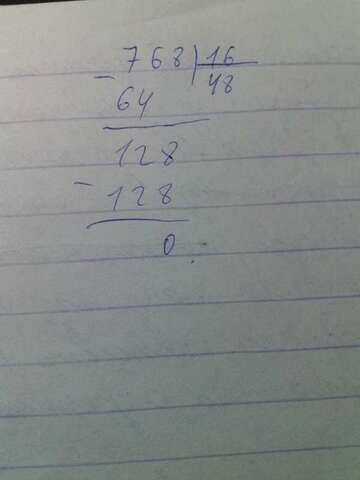 768 16
- 48
64
128
- 128
0